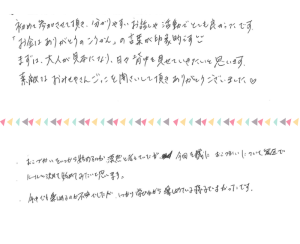 初めて参加させて頂き、分かりやすいお話しや活動でとても良かったです。
「お金はありがとうのこうかん」の言葉が印象的です
まずは、大人が見本になり、日々背中を見せていきたいと思います。
素敵なおみせやさんごっこを開さいして頂きありがとうございました。
・おこづかいをいつから始めるのか漠然と考えていたが 今回を機に おこづかいについて家族で
ルールを決めて始めてみたいと思います。
・今年も楽しめるか不安でしたが しっかり学びながら楽しめている様子でよかったです。